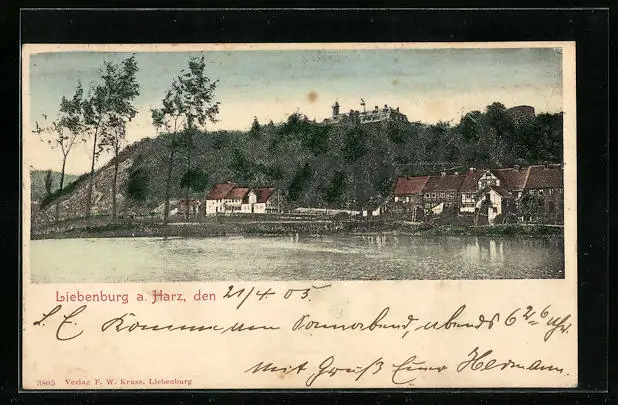 Liebenburg a. Harz, den 21/4 05
L. E. Komme am Sonnabend, abends 6 26 Uhr
Mit Gruß Euer Hermann.
3805 Verlag F. W. Kruse, Liebenburg